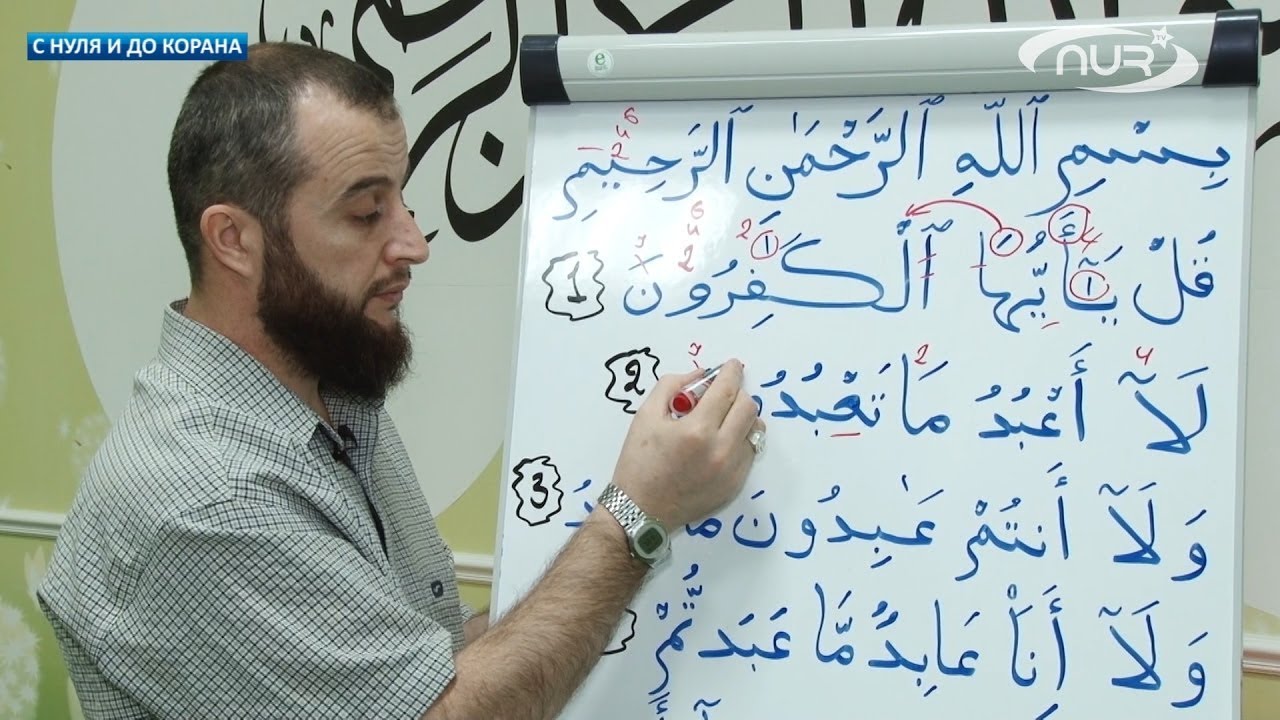 С НУЛЯ И ДО КОРАНА
NUR TV
بِسْمِ ٱللَّهِ ٱلرَّحْمَٰنِ ٱلرَّحِيمِ
قُلْ يَـٰٓأَيُّهَا ٱلْكَـٰفِرُونَ 1
لَآ أَعْبُدُ مَا تَعْبُدُونَ 2
وَلَآ أَنتُمْ عَـٰبِدُونَ 3
وَلَآ أَنَا۠ عَابِدٌ مَّا عَبَدتُّمْ